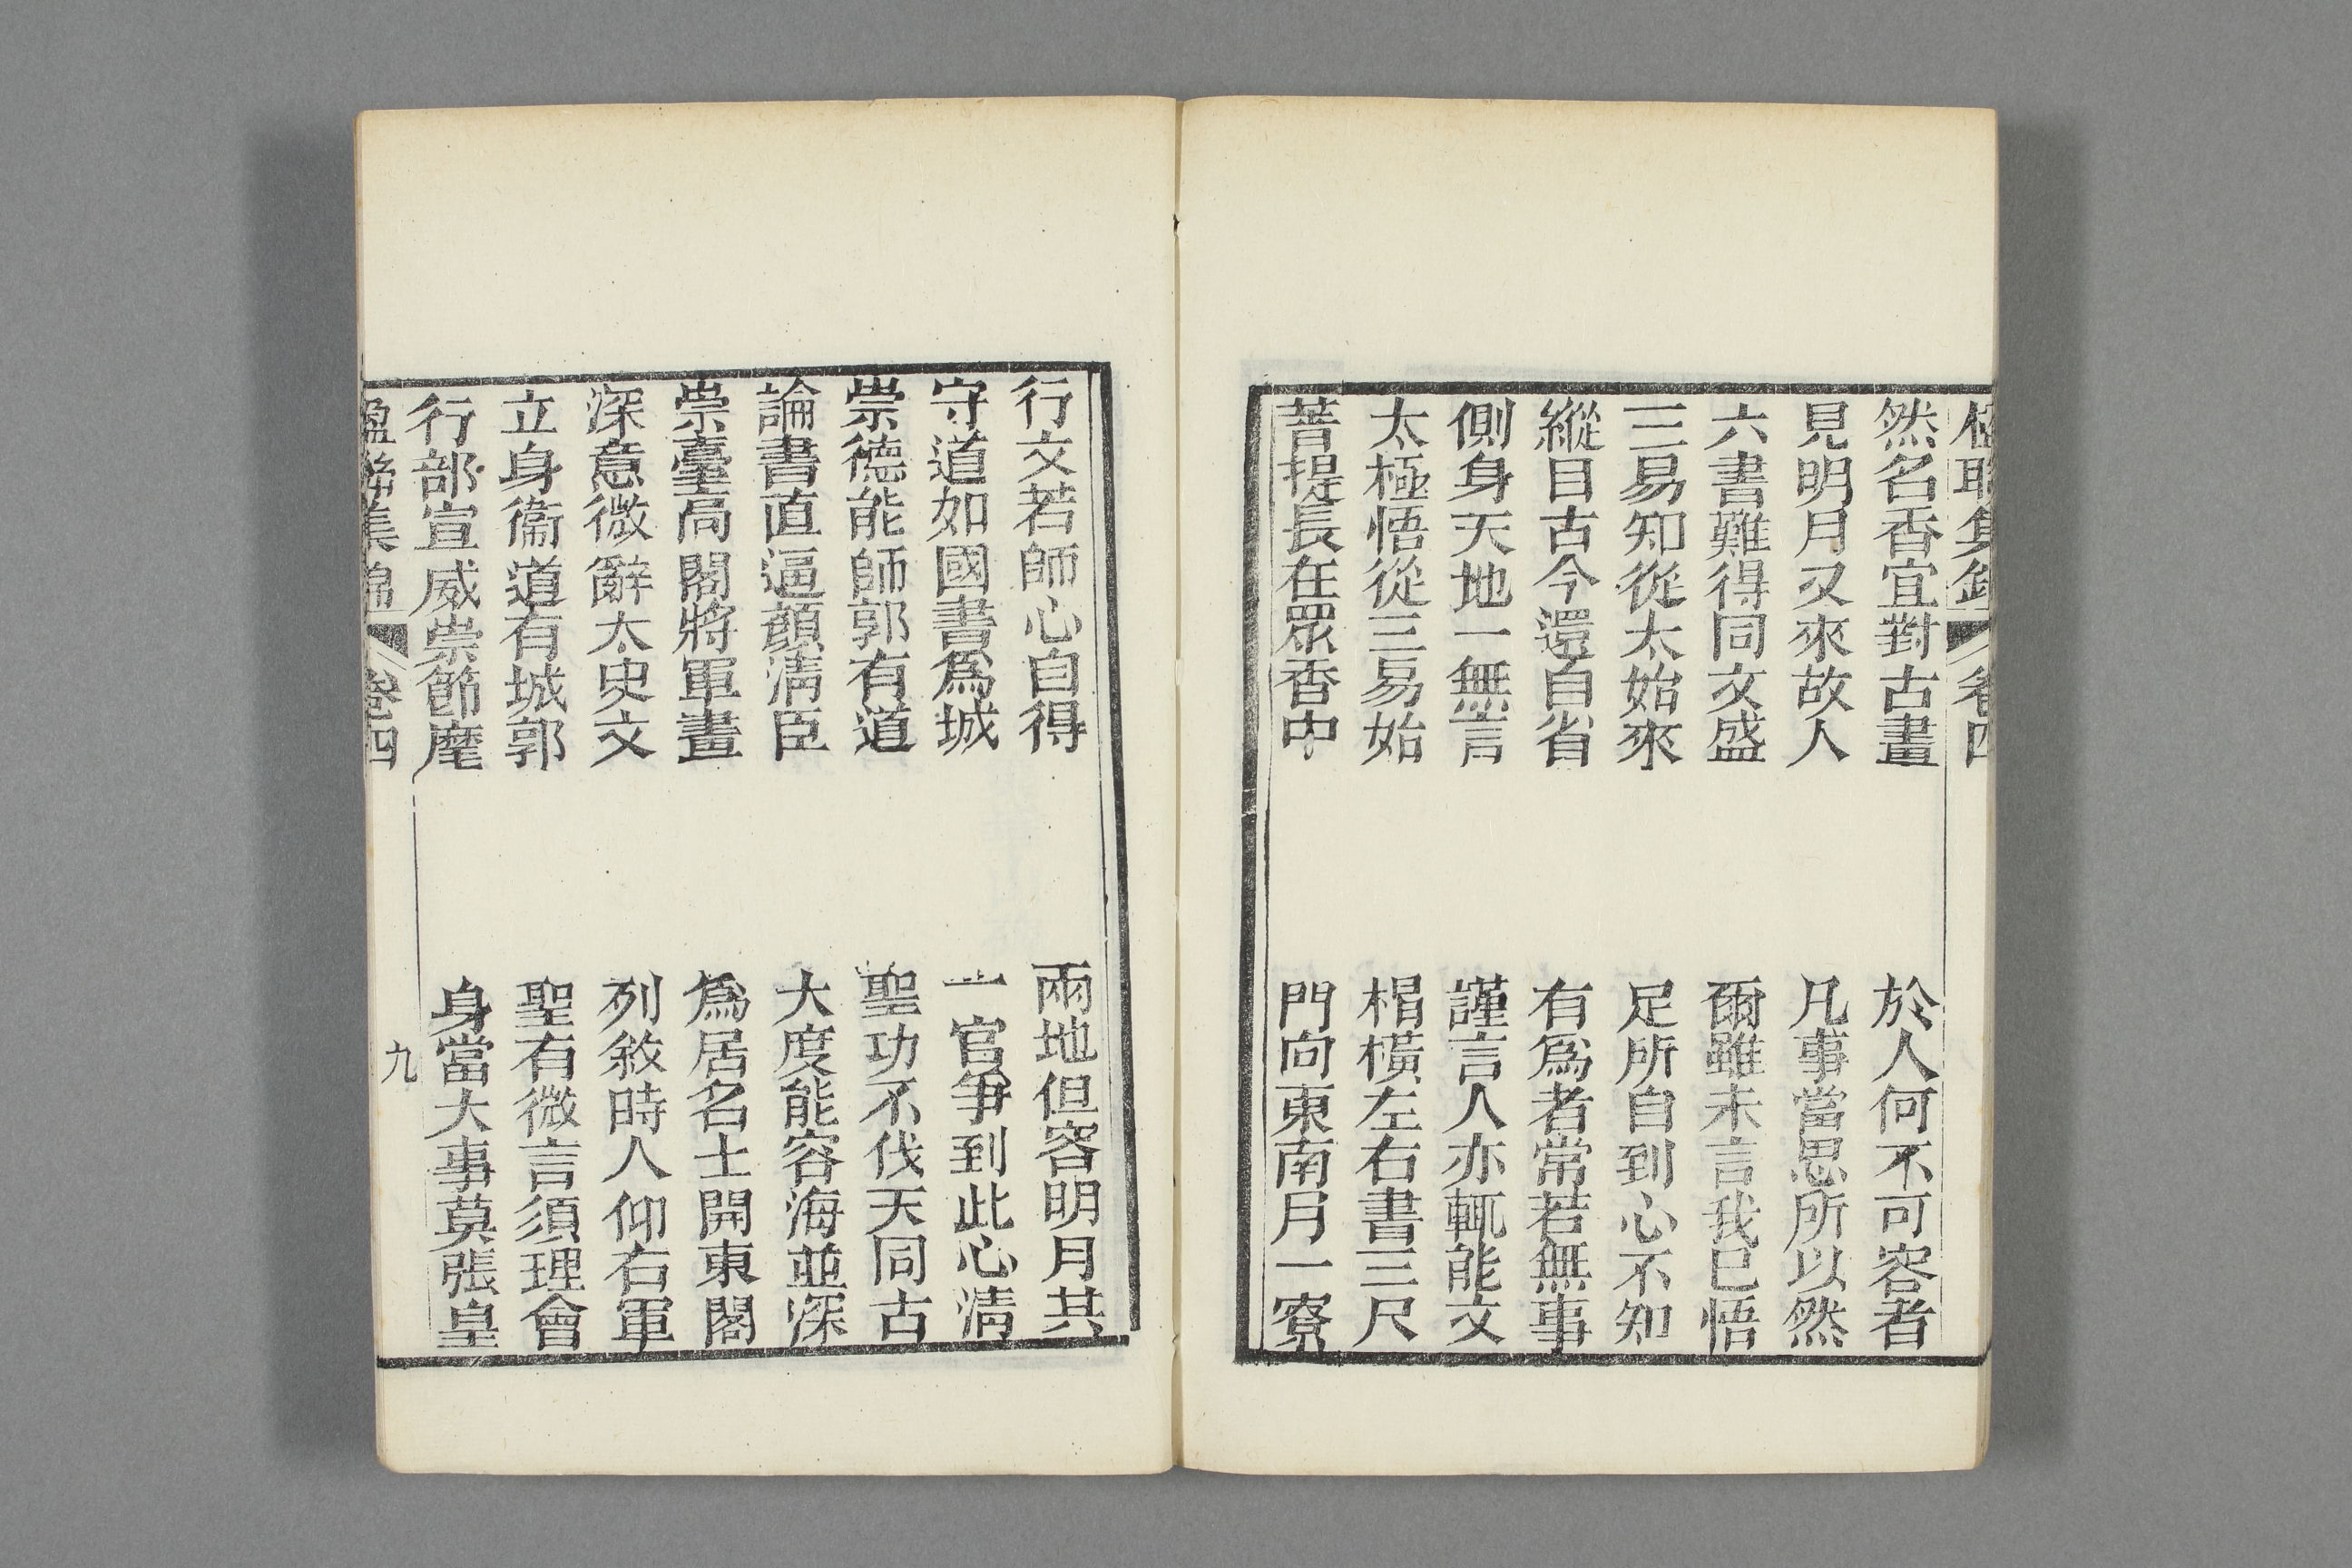 楹聯集錦 卷四
然名香宜對古畫 於人何不可容者
見明月又來故人 凡事當思所以然
六書難得同文盛 爾雖未言我已悟
三易知從太始來 足所自到心不知
縱目古今還自省 有爲者常若無事
側身天地一無言 謹言人亦輒能文
太極悟從三易始 榻橫左右書三尺
菩提長在眾香中 門向東南月一寮
行文若師心自得 兩地但容明月共
守道如國書爲城 一官爭到此心淸
崇德能師郭有道 聖功不伐天同古
論書直逼顏淸臣 大度能容海並深
崇臺高閣將軍畫 爲居名士開東閣
深意微辭太史文 列敘時人仰右軍
立身衞道有城郭 聖有微言須理會
行部宣威崇節麾 身當大事莫張皇
楹聯集錦 卷四 九